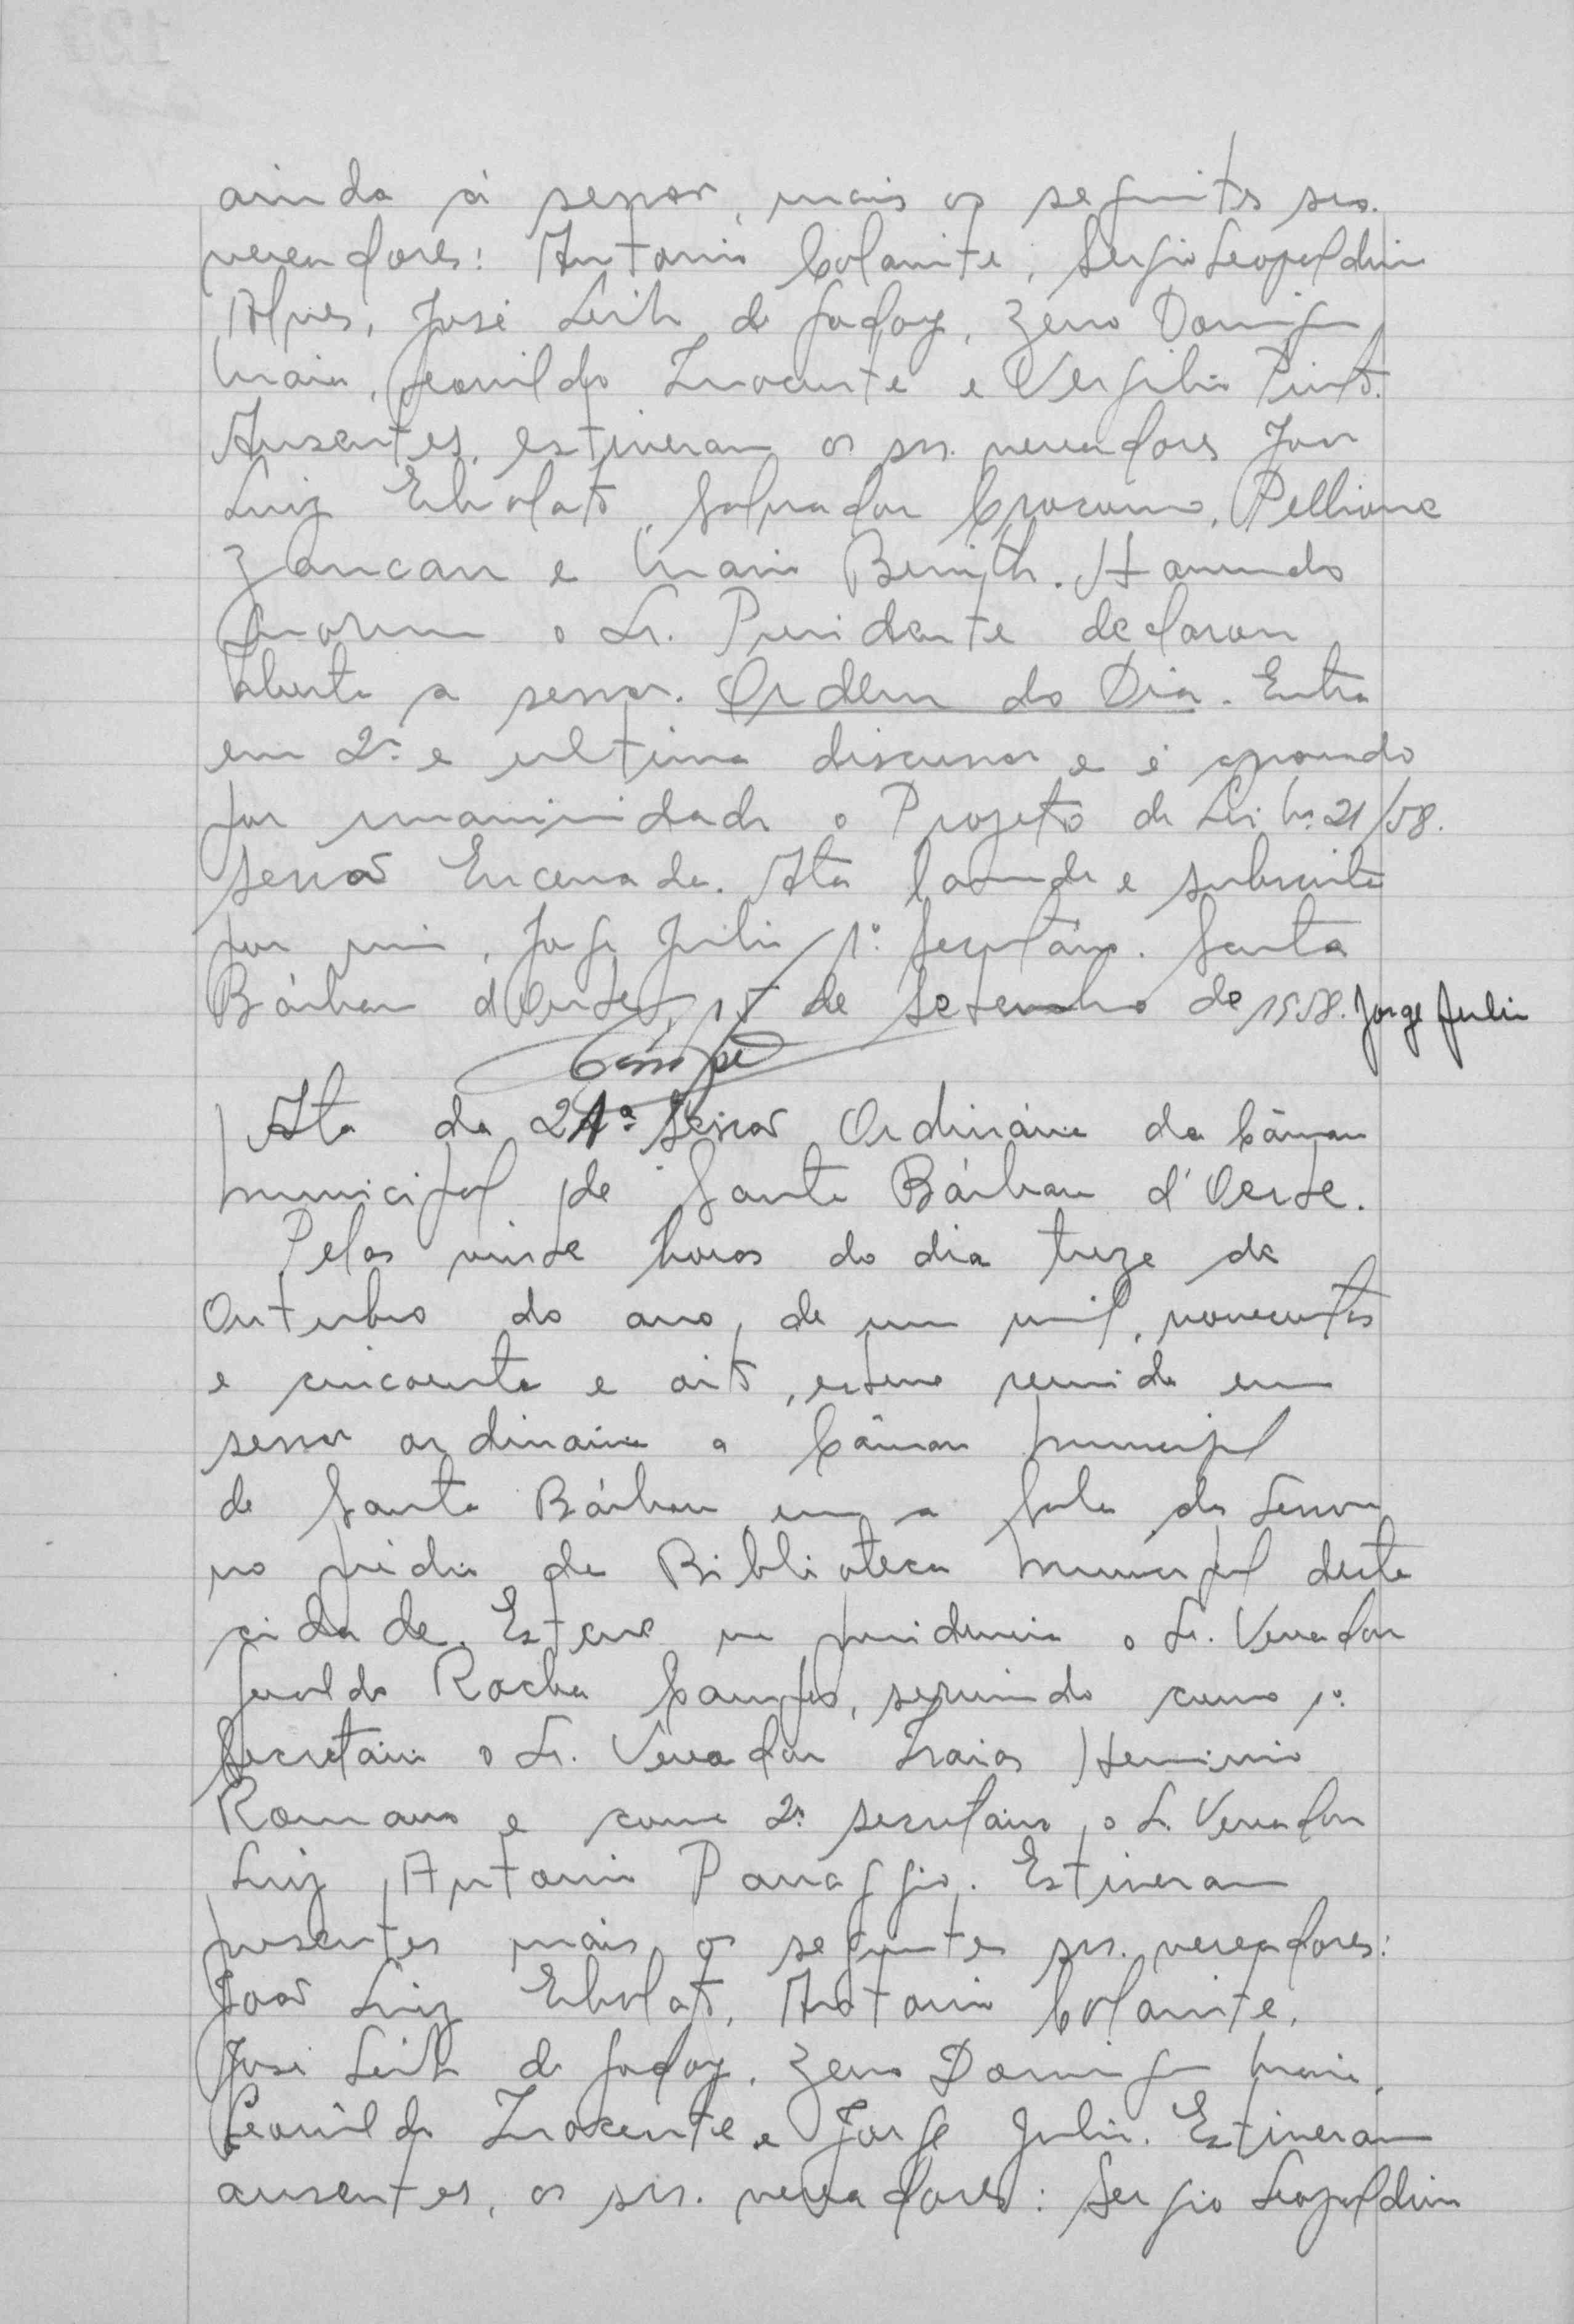 ainda à sessão, mais os seguintes srs.
vereadores: Antonio Colamite, Sergio Leopoldino
Alves, José Leite de Godoy, Zeno Domingos
Maia, Leonildo Inocente e Vergilio Pinto.
Ausentes, estiveram os srs. vereadores João
Luiz Ebolato, Salvador, Pellisone
Zancan e Mario. Havendo
Quorum o Sr. Presidente declarou
aberta a sessão. Ordem do Dia. Entra
em 2ª e ultima discussão e é aprovado
por unanimidade o Projeto de Lei Nº 21/58.
Sessão Encerrada. Ata lavrada e subscrita
por mim, Jorge Julio, 1º Secretário. Santa
Bárbara d'Oeste, 15 de Setembro de 1958. Jorge Julio
Ata da 21ª Sessão Ordinária da Câmara
Municipal de Santa Bárbara d'Oeste.
Pelas vinte horas do dia treze de
Outubro do ano, de um mil, novecentos
e cincoenta e oito, esteve reunida em
sessão ordinária a Câmara Municipal
de Santa Bárbara em a Sala das Sessões
no prédio da Biblioteca Municipal desta
cidade. Esteve na presidencia o Sr. Vereador
Geraldo Rocha Campos, servindo como 1º
Secretario o Sr. Vereador Izaias Herminio
Romano e como 2º secretario, o Sr. Vereador
Luiz Antonio Panaggio. Estiveram
presentes mais os seguintes srs. vereadores:
João Luiz Ebolato, Antonio Colamite,
José Leite de Godoy, Zeno Domingos Maia,
Leonildo Inocente e Jorge Julio. Estiveram
ausentes, os srs. vereadores: Sergio Leopoldino